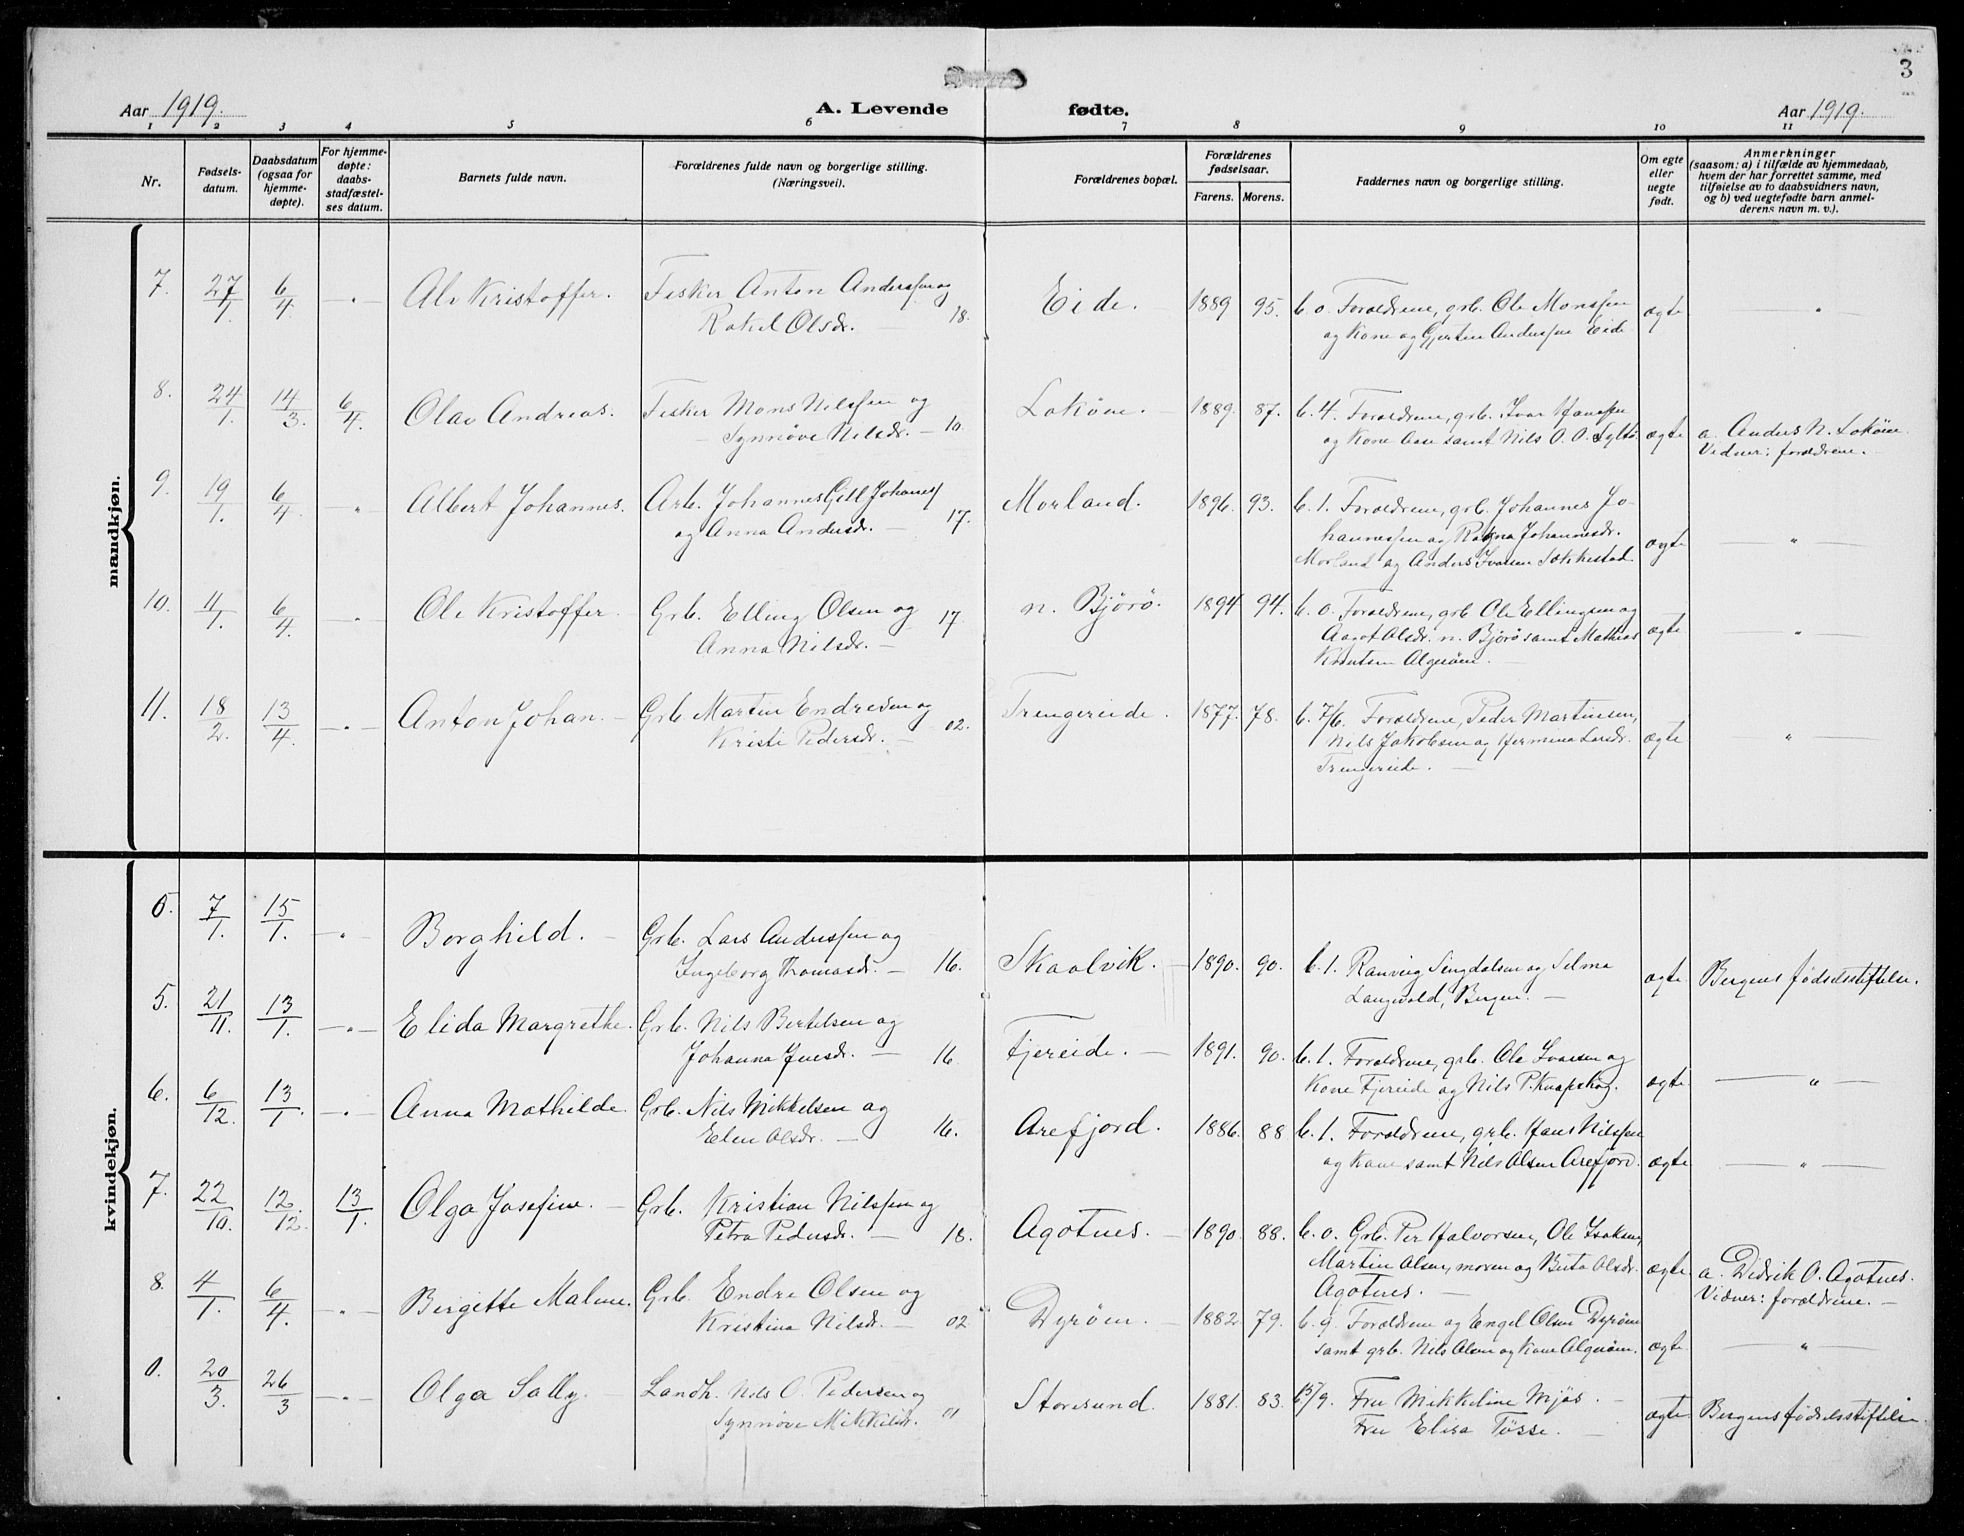 3
Aar 1919. A. Levende fødte. Aar 1919.
1 2 3 4 5 6 7 8 9 10 11
Nr.
Fødsels-
datum.
Daabsdatum
(ogsaa for
hjemme-
døpte).
For hjemme-
døpte:
daabs-
stadfæstel-
ses datum.
Barnets fulde navn.
Forældrenes fulde navn og borgerlige stilling.
(Næringsvei).
Forældrenes bopæl.
Forældrenes
fødselsaar.
Farens. Morens.
Faddernes navn og borgerlige stilling.
Om egte
eller
uegte
født.
Anmerkninger
(saasom: a) i tilfælde av hjemmedaab,
hvem der har forrettet samme, med
tilføielse av to daabsvidners navn,
og b) ved uegtefødte barn anmel-
derens navn m. v.).
mandkjøn.
7. 27/1. 6/4. -"- Ole Kristoffer. Fisker Anton Anderssen og
Rakel Olsdr. — 18. Eide. — 1889 95. b. 0. Forældrene, grb. Ole Monssen
og Kone og Gjertin Anderssen Eide ægte — " —
8. 24/1. 14/3. 6/4. Olav Andreas. Fisker Mons Nilssen og
— Synnøve Nilsdr. — 10. Lokøen. — 1889. 87. b. 4. Forældrene, grb. Ivar Hanssen
og Kone Aase samt Nils O. O. Syltø. ægte a. Anders N. Lokøen.
Vidner: forældrene. —
9. 19/1. 6/4. " Albert Johannes. Arb. Johannes Gill Johanes/
og Anna Andersdr. — 17. Morland. 1896. 93. b. 1. Forældrene, grb. Johannes Jo-
hannessen og Ragna Johannesdr.
Morland og Anders Ivarsen Sekkestad. ægte — " —
10. 11/1. 6/4. -"- Ole Kristoffer. Grb. Elling Olsen og
Anna Nilsdr. — 17. n. Bjørø. 1894. 94. b. 0. Forældrene, grb. Ole Ellingsen og
Aagot Olsdr. n. Bjørø samt Mathias
Knutsen Algrøen. — ægte "
11. 18/2. 13/4. -"- Anton Johan. — Grb. Martin Endresen og
Kristi Pedersdr. — 02. Trengereide. 1877. 78. b. 7/6. Forældrene, Peder Martinsen,
Nils Jakobsen og Hermina Larsdr.
Trengereide. — ægte — " —
kvindekjøn.
0. 7/1. 15/1. -"- Borghild. — Grb. Lars Anderssen og
Ingeborg Thomasdr. — 16. Skaalvik. — 1890. 90. b. 1. Ranveig Sengdalsen og Selma
Langevald, Bergen. — ægte Bergens fødselsstiftelse.
5. 21/11. 13/1. -"- Elida Margrethe. Grb. Nils Bertelsen og
Johanna Jensdr. — 16. Fjereide. — 1891. 90. b. 1. Forældrene, grb. Ole Ivarsen og
Kone Fjereide og Nils P. Knapskog. ægte — " —
6. 6/12. 13/1. -"- Anna Mathilde. Grb. Nils Mikkelsen og
Elen Olsdr. — 16. Arefjord. 1886. 88 b. 1. Forældrene, grb. Hans Nilssen
og Kone samt Nils Olsen Arefjord. ægte — " —
7. 22/10. 12/12. 13/1. Olga Josefine. — Grb. Kristian Nilssen og
Petra Pedersdr. — 18. Agotnes. — 1890. 88. b. 0. Grb. Per Halvorsen, Ole Isaksen,
Martin Olsen, moren og Berta Olsdr.
Agotnes. — ægte a. Didrik O. Agotnes.
Vidner: forældrene. —
8. 4/1. 6/4. -"- Birgitte Malene. Grb. Endre Olsen og
Kristina Nilsdr. — 02. Dyrøen. — 1882. 79. b. 9. Forældrene og Engel Olsen Dyrøen
samt grb. Nils Olsen og Kone Algrøen. ægte — " —
0. 20/3. 26/3 -"- Olga Sally. Landh. Nils O. Pedersen og
Synnøve Mikkelsdr. 01 Storesund. 1881. 83. 9. Fru Mikkeline Mjøs. —
Fru Elisa Tøsse. — ægte Bergens fødselsstiftelse.